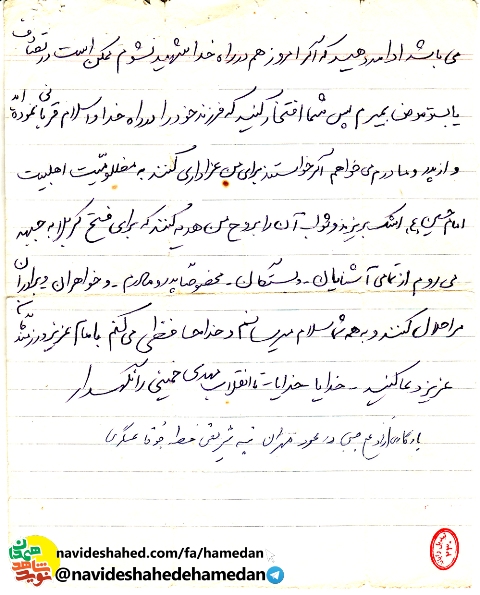 می باشد ادامه دهید که اگر امروز هم در راه خدا شهید نشوم ممکن است در تصادف
یا با مرض بمیرم پس شما افتخار کنید که فرزند خود را در راه خدا و اسلام قربانی نموده‌اید
و از پدر و مادرم می خواهم اگر خواستند برای من عزاداری کنند به مظلومیت اهلبیت
امام حسین (ع) اشک بریزند و ثواب آن را بروح من هدیه کنند که برای فتح کربلا به جبهه
می روم از تمامی آشنایان - بستگان - مخصوصاً پدر و مادرم - و خواهران و برادران
مرا حلال کنند و به همه شما سلام میرسانم و خداحافظی می کنم با امام عزیز و رزمندگان
عزیز دعا کنید - خدایا خدایا تا انقلاب مهدی خمینی را نگهدار
navideshahed.com/fa/hamedan
@navideshahedehamedan
نوید شاهد همدان